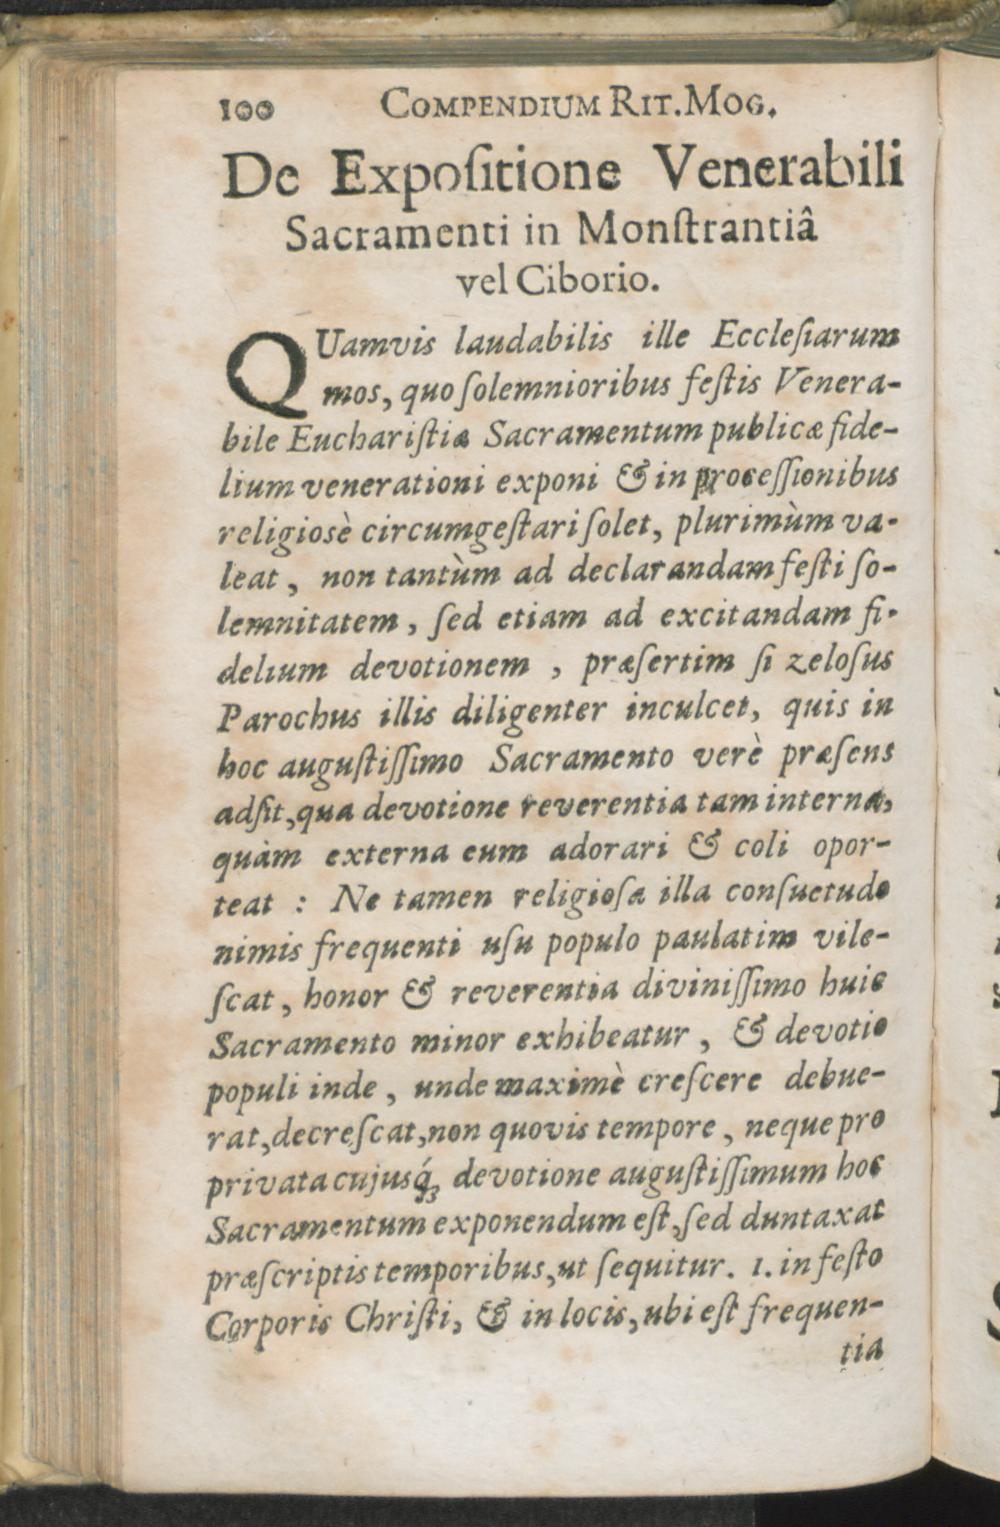 100 COMPENDIUM RIT. MOG.
De Expoſitione Venerabili
Sacramenti in Monſtrantiâ
vel Ciborio.
QUamvis laudabilis ille Eccleſiarum
mos, quo ſolemnioribus feſtis Venera-
bile Euchariſtiæ Sacramentum publicæ fide-
lium venerationi exponi & in proceſſionibus
religiosè circumgeſtari ſolet, plurimùm va-
leat, non tantùm ad declarandam feſti ſo-
lemnitatem, ſed etiam ad excitandam fi-
delium devotionem, præſertim ſi zeloſus
Parochus illis diligenter inculcet, quis in
hoc auguſtiſſimo Sacramento verè præſens
adſit, qua devotione reverentia tam interna,
quàm externa eum adorari & coli opor-
teat : Ne tamen religioſa illa conſuetudo
nimis frequenti uſu populo paulatim vile-
ſcat, honor & reverentia diviniſſimo huic
Sacramento minor exhibeatur, & devotio
populi inde, unde maximè creſcere debue-
rat, decreſcat, non quovis tempore, neque pro
privata cujusq́ꝫ devotione auguſtiſſimum hoc
Sacramentum exponendum eſt, ſed duntaxat
præſcriptis temporibus, ut ſequitur. 1. in feſto
Corporis Chriſti, & in locis, ubi eſt frequen-
tia